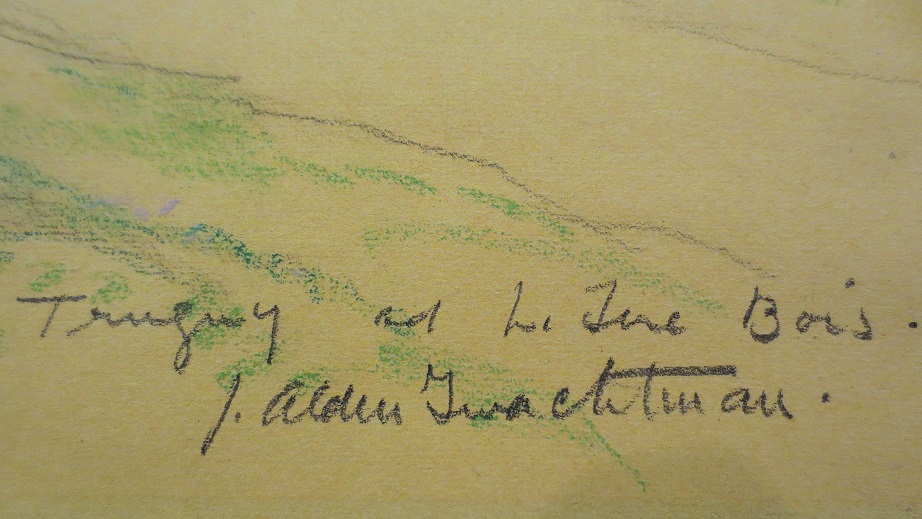 Trugny and La Fere Bois.
J. Alden Twachtman.